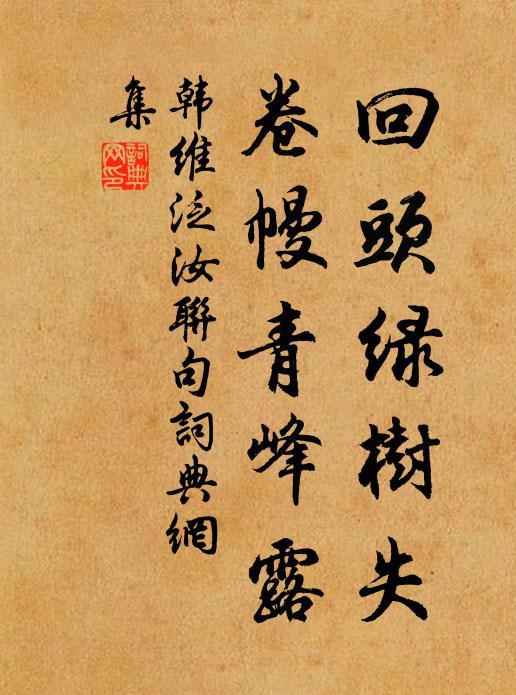 回頭緑樹失
卷幔青峰露
韩維泛汝聯句詞典網
集
詞典網印